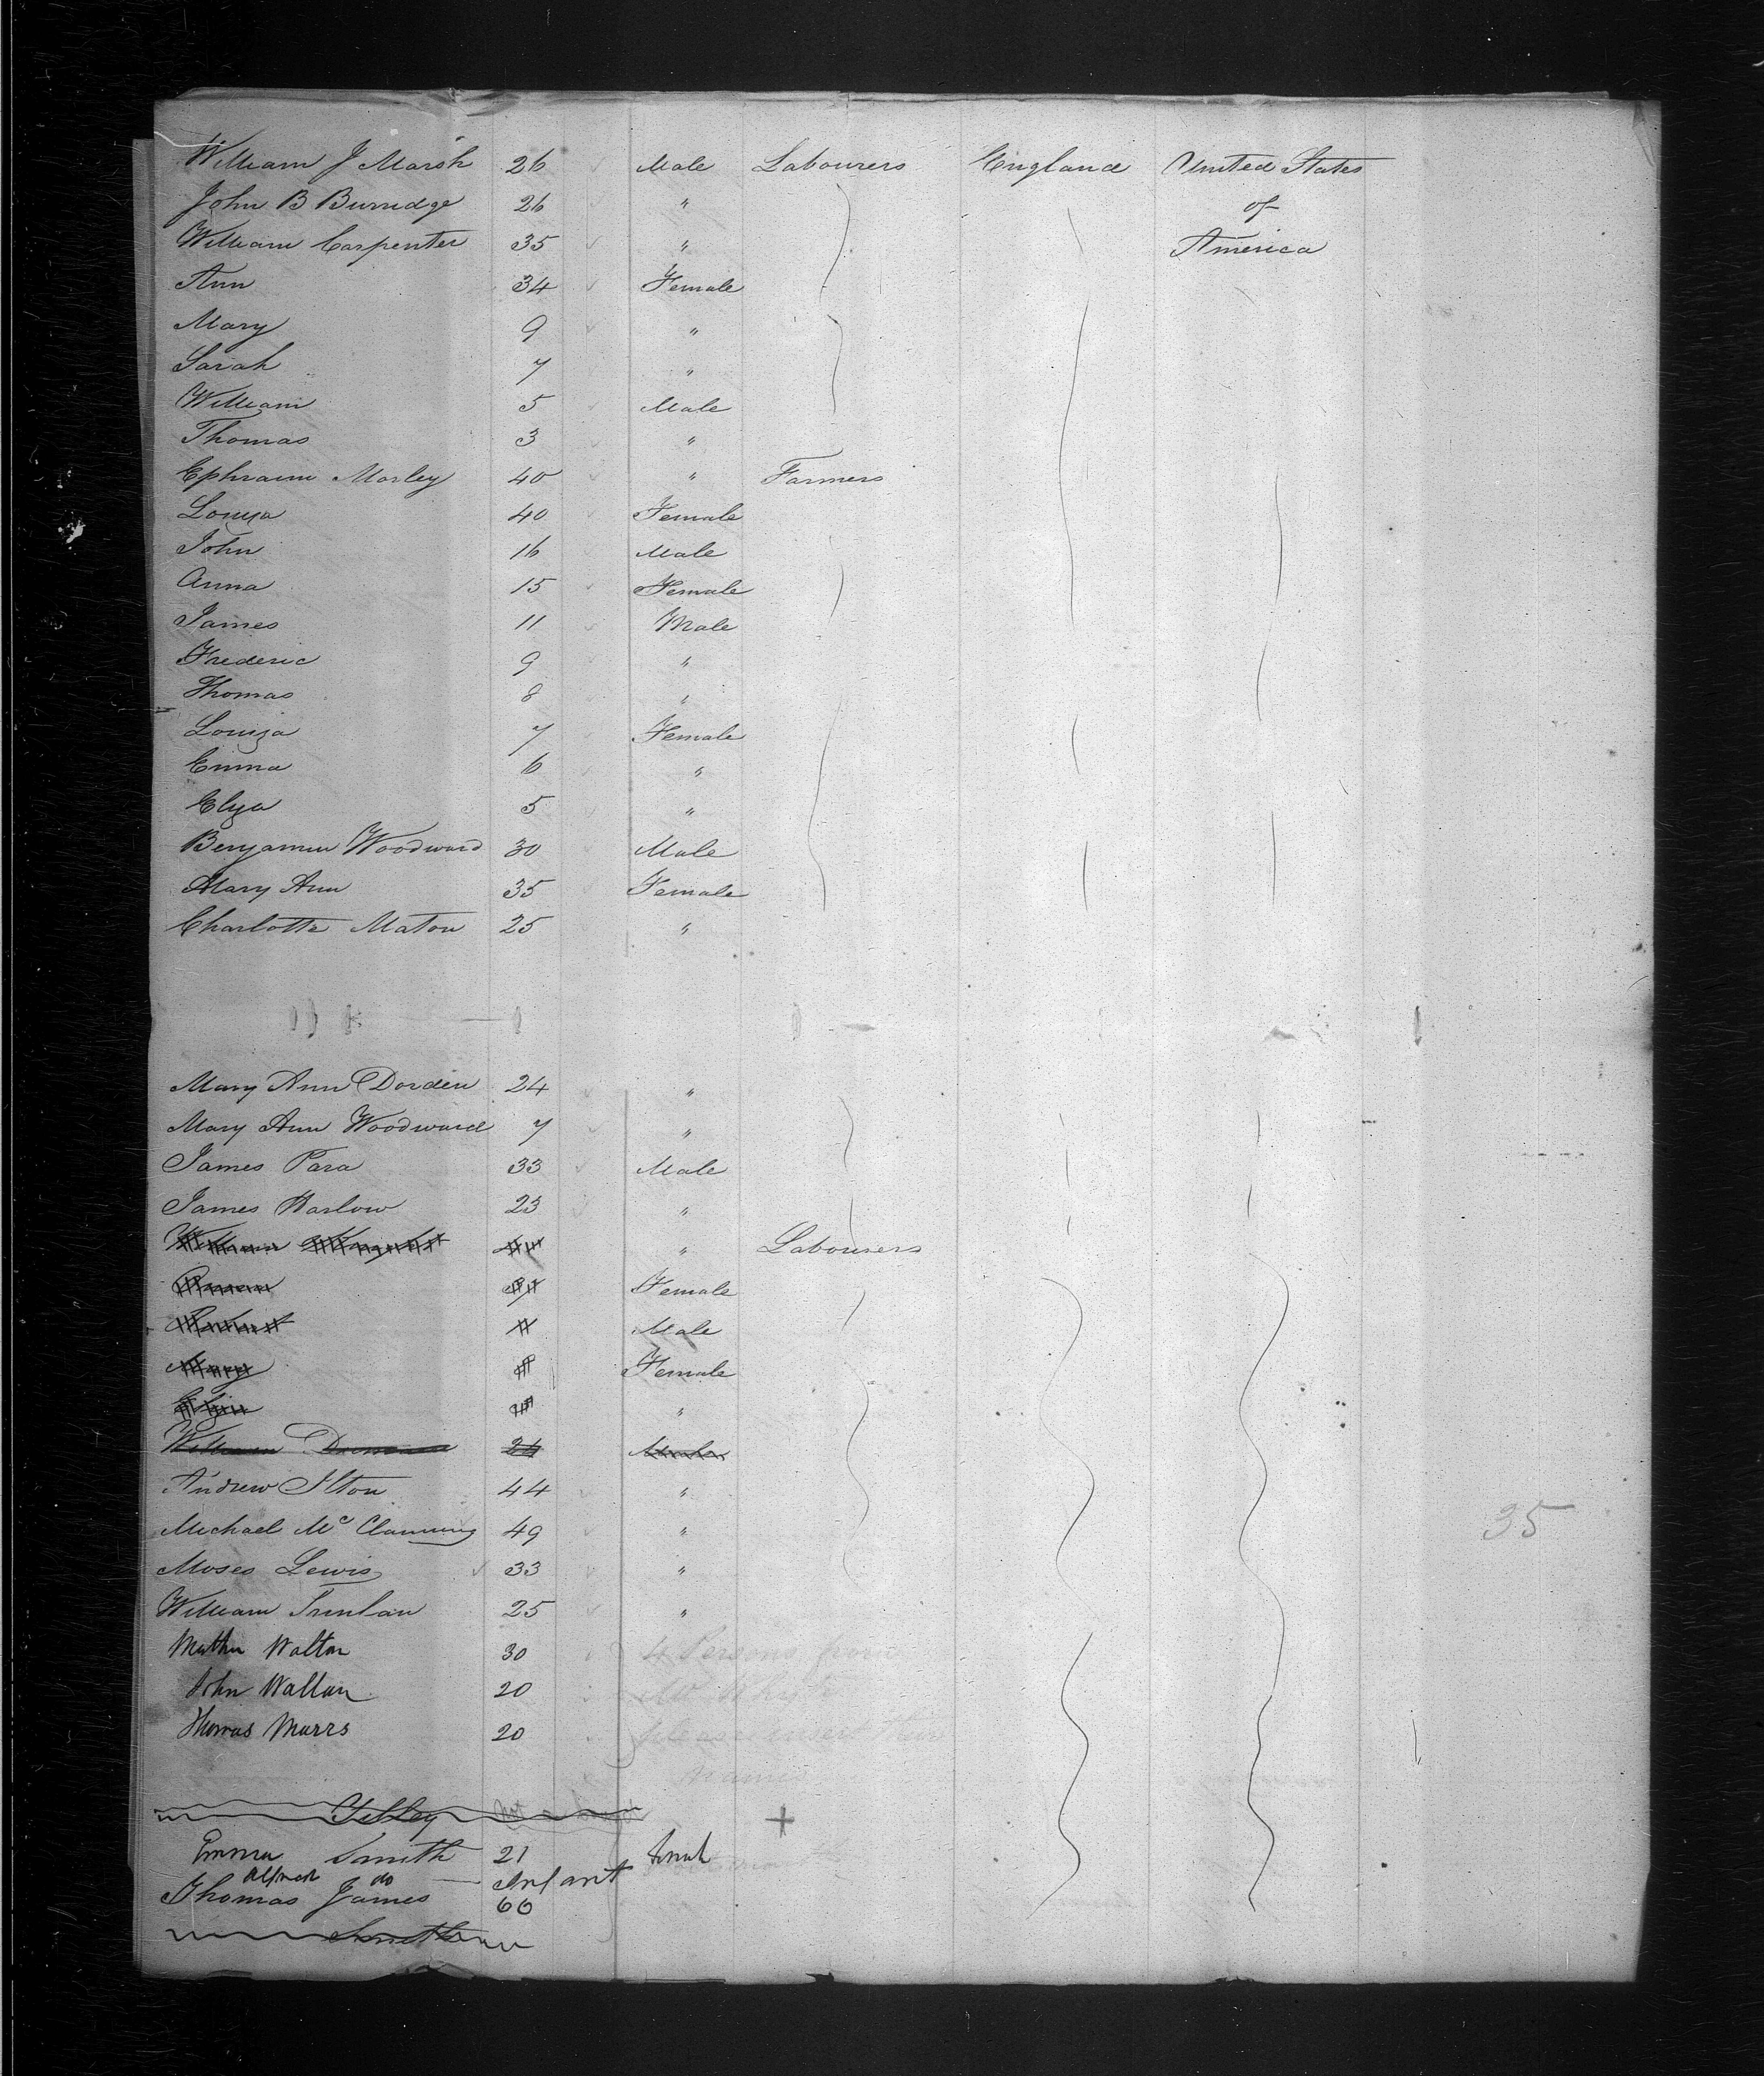 William J Marsh 26 Male Labourers England United States
John B Burridge 26 " of
William Carpenter 35 " America
Ann 34 Female
Mary 9 "
Sarah 7 "
William 5 Male
Thomas 3 "
Ephraim Morley 40 " Farmers
Louiza 40 Female
John 16 Male
Anna 15 Female
James 11 Male
Frederic 9 "
Thomas 8 "
Louiza 7 Female
Emma 6 "
Eliza 5 "
Benjamin Woodward 30 Male
Mary Ann 35 Female
Charlotte Maton 25 "
Mary Ann Dorden 24 "
Mary Ann Woodward 7 "
James Para 33 Male
James Barlow 23 "
William " Labourers
Female
Robert Male
Mary Female
Eliza "
William 24 Male
Andrew Ilton 44 "
Michael Mc Clanning 49 "
Moses Lewis 33 "
William 25 "
Walton 30 4 Persons from
John Wallan 20
Thomas Marrs 20 please insert their
names
Tilley
Emma Smith 21
Alfred do Infant
Thomas James 60
Smith
35